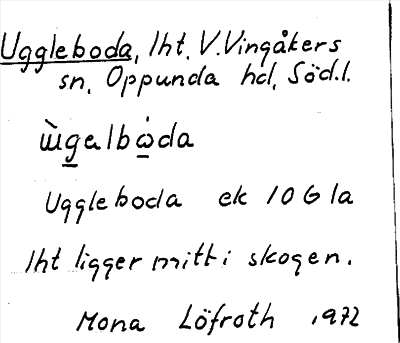 Uggleboda, lht. V.Vingåkers
sn, Oppunda hd, Söd.l.
ɯ̀gəlbω̇da
Uggleboda ek 10 G 1a
lht ligger mitt i skogen.
Mona Löfroth 1972